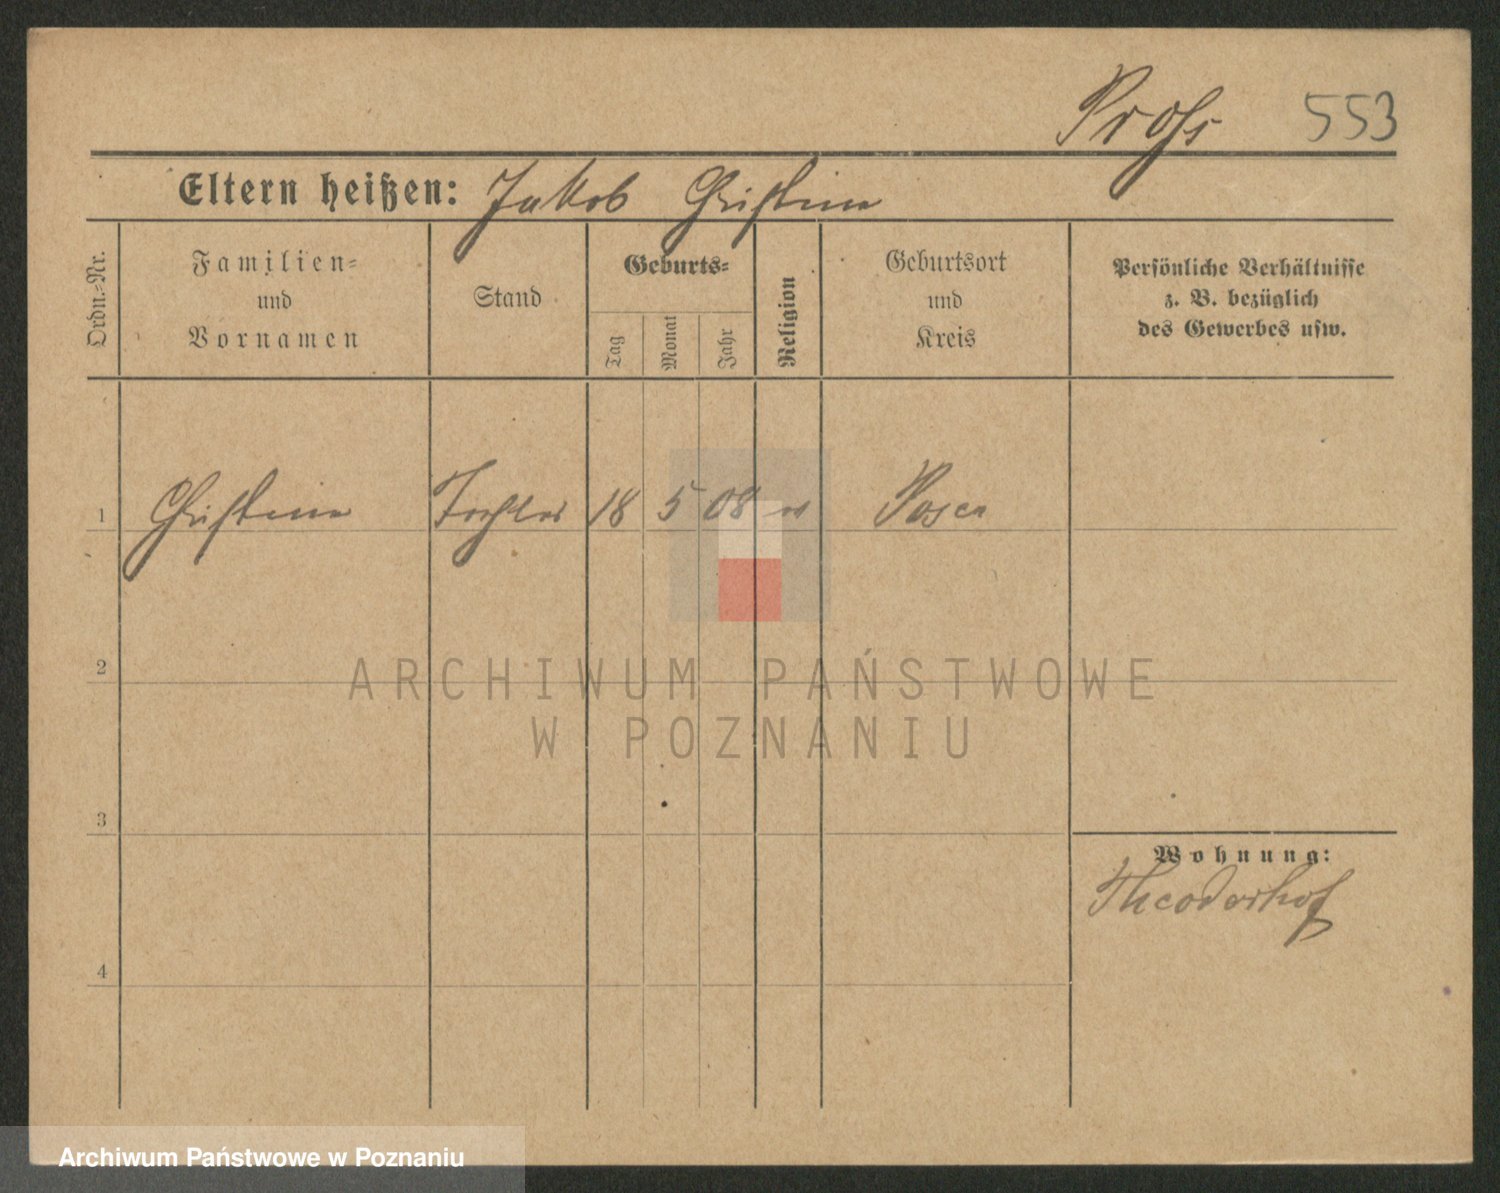 553
Eltern heißen: Jakob Christine
Ordn.-Nr.
Familien-
und
Vornamen
Stand
Geburts-
Tag
Monat
Jahr
Religion
Geburtsort
und
Kreis
Persönliche Verhältnisse
z. B. bezüglich
des Gewerbes usw.
1 Christine Tochter 18 5 08 Posen
2
ARCHIWUM PAŃSTWOWE
W POZNANIU
3
Wohnung:
Theodorhof
4
Archiwum Państwowe w Poznaniu